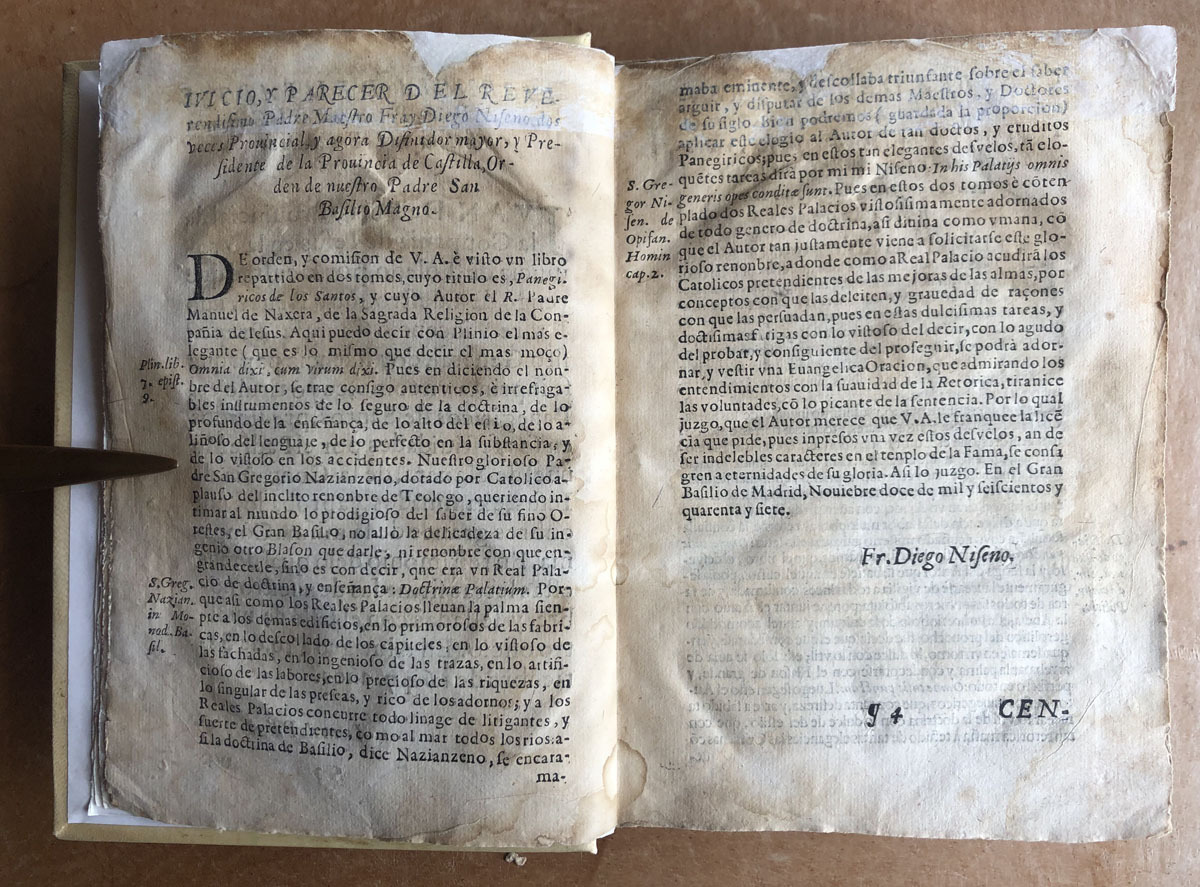 IVICIO, Y PARECER DEL REVE-
rendisimo Padre Maestro Fray Diego Niseno, dos
veces Prouincial, y agora Difinidor mayor, y Pre-
sidente de la Prouincia de Castilla, Or-
den de nuestro Padre San
Basilio Magno.
DE orden, y comision de V. A. è visto vn libro
repartido en dos tomos, cuyo titulo es, Panegi-
ricos de los Santos, y cuyo Autor el R. Padre
Manuel de Naxera, de la Sagrada Religion de la Con-
pañia de Iesus. Aqui puedo decir con Plinio el mas e-
legante (que es lo mismo que decir el mas moço)
Plin. lib.
7. epist.
9.
Omnia dixi, cum virum dixi. Pues en diciendo el non-
bre del Autor, se trae consigo autenticos, è irrefraga-
bles instrumentos de lo seguro de la doctrina, de lo
profundo de la enseñança, de lo alto del estilo, de lo a-
liñoso del lenguaje, de lo perfecto en la substancia, y
de lo vistoso en los accidentes. Nuestro glorioso Pa-
dre San Gregorio Nazianzeno, dotado por Catolico a-
plauso del inclito renonbre de Teologo, queriendo in-
timar al mundo lo prodigioso del saber de su fino O-
restes, el Gran Basilio, no allò la delicadeza de su in-
genio otro Blason que darle, ni renonbre con que en-
grandecerle, sino es con decir, que era vn Real Pala-
S. Greg.
Nazian.
in Mo-
nod. Ba-
sil.
cio de doctrina, y enseñança: Doctrinæ Palatium. Por-
que asi como los Reales Palacios lleuan la palma sien-
pre a los demas edificios, en lo primorosos de las fabri-
cas, en lo descollado de los capiteles, en lo vistoso de
las fachadas, en lo ingenioso de las trazas, en lo artifi-
cioso de las labores, en lo precioso de las riquezas, en
lo singular de las preseas, y rico de los adornos; y a los
Reales Palacios concurre todo linage de litigantes, y
suerte de pretendientes, como al mar todos los rios: a-
si la doctrina de Basilio, dice Nazianzeno, se encara-
ma-
maba eminente, y descollaba triunfante sobre el saber
arguir, y disputar de los demas Maestros, y Doctores
de su siglo. Bien podremos (guardada la proporcion)
aplicar este elogio al Autor de tan doctos, y eruditos
Panegiricos; pues en estos tan elegantes desvelos, tã elo-
quẽtes tareas dirà por mi mi Niseno: In his Palatijs omnis
S. Gre-
gor Ni-
sen. de
Opifan.
Homin
cap. 2.
generis opes conditæ sunt. Pues en estos dos tomos è cõten
plado dos Reales Palacios vistosisimamente adornados
de todo genero de doctrina, asi diuina como vmana, cõ
que el Autor tan justamente viene a solicitarse este glo-
rioso renonbre, a donde como a Real Palacio acudirà los
Catolicos pretendientes de las mejoras de las almas, por
conceptos con que las deleiten, y grauedad de raçones
con que las persuadan, pues en estas dulcisimas tareas, y
doctisimas fatigas con lo vistoso del decir, con lo agudo
del probar, y consiguiente del proseguir, se podrà ador-
nar, y vestir vna Euangelica Oracion, que admirando los
entendimientos con la suauidad de la Retorica, tiranice
las voluntades, cõ lo picante de la sentencia. Por lo qual
juzgo, que el Autor merece que V. A. le franquee la licẽ
cia que pide, pues inpresos vna vez estos desvelos, an de
ser indelebles caracteres en el tenplo de la Fama, se consa
gren a eternidades de su gloria. Asi lo juzgo. En el Gran
Basilio de Madrid, Nouiebre doce de mil y seiscientos y
quarenta y siete.
Fr. Diego Niseno.
¶ 4 CEN-